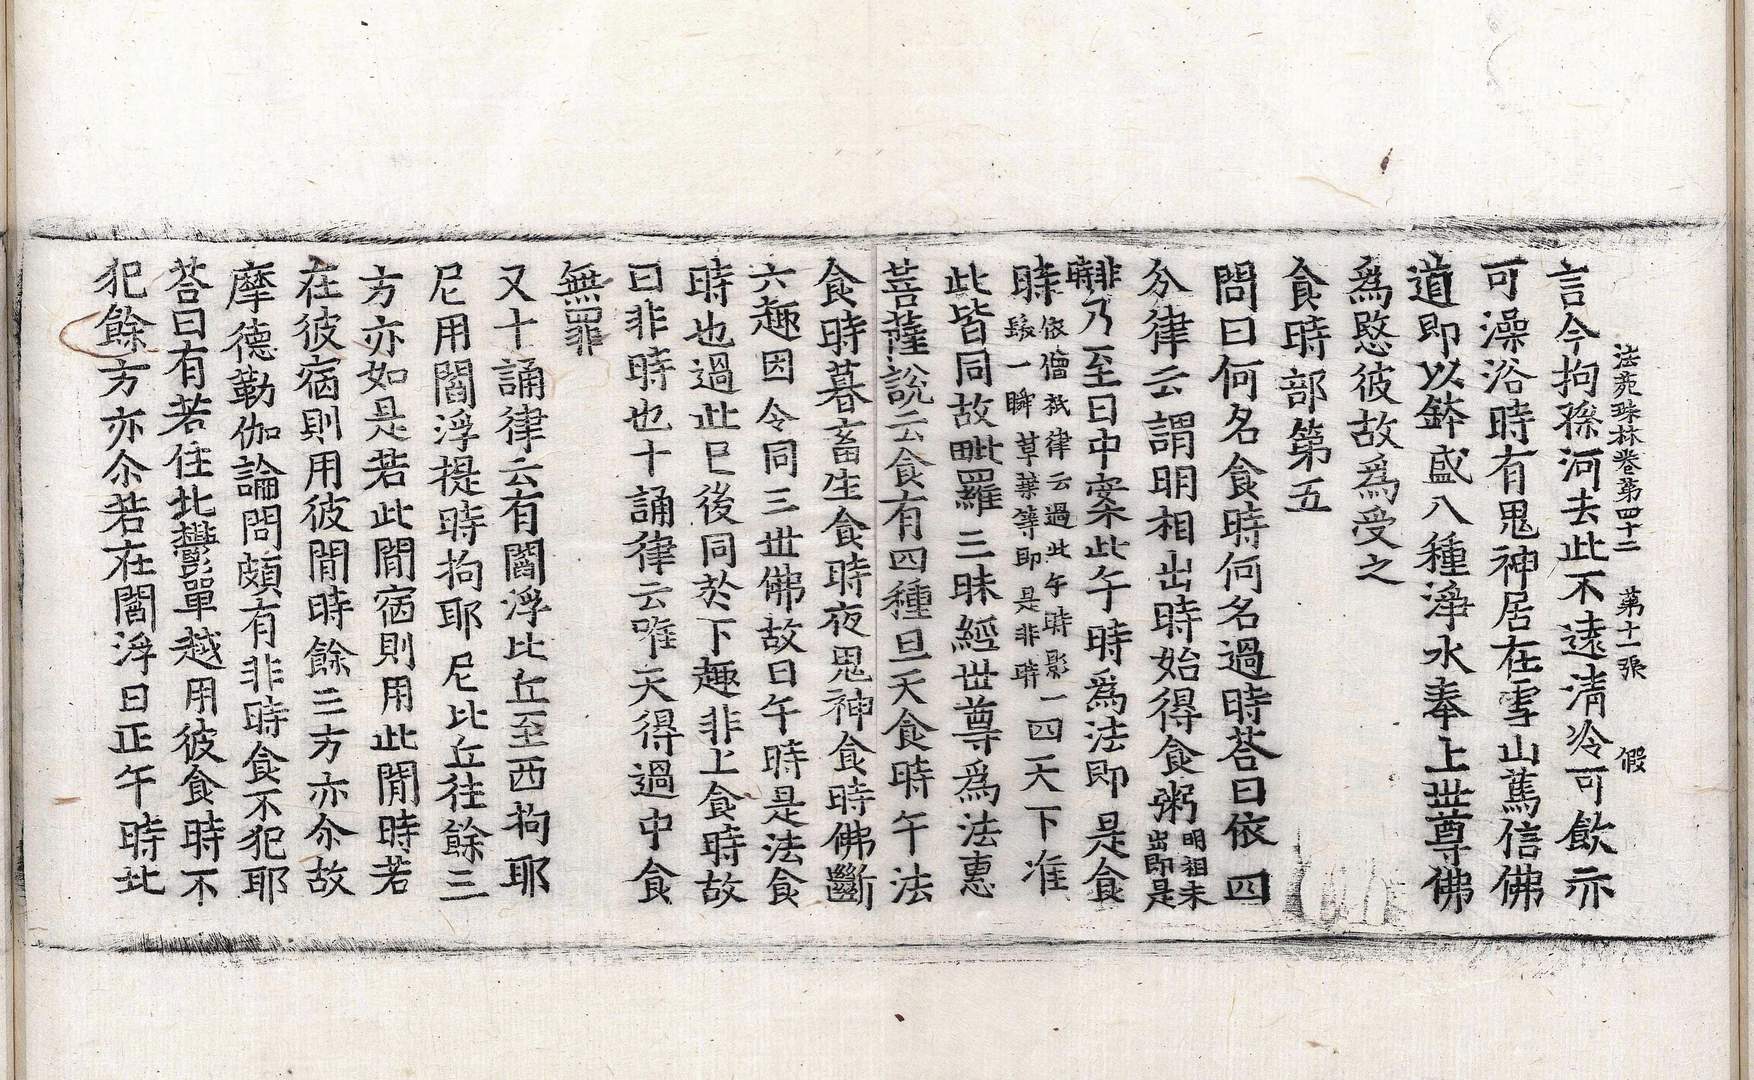 法苑珠林卷第四十二 第十一張 假
言今拘孫河去此不遠清冷可飲亦
可澡浴時有鬼神居在雪山篤信佛
道即以鉢盛八種淨水奉上世尊佛
為愍彼故為受之
食時部第五
問曰何名食時何名過時荅曰依四
分律云謂明相出時始得食粥明相未出即是
非時乃至日中案此午時為法即是食
時依僧祇律云過此午時影一髮一瞬草葉等即是非時四天下准
此皆同故毗羅三昧經世尊為法惠
菩薩說云食有四種旦天食時午法
食時暮畜生食時夜鬼神食時佛斷
六趣因令同三世佛故日午時是法食
時也過此已後同於下趣非上食時故
曰非時也十誦律云唯天得過中食
無罪
又十誦律云有閻浮比丘至西拘耶
尼用閻浮提時拘耶尼比丘往餘三
方亦如是若此間宿則用此間時若
在彼宿則用彼間時餘三方亦尒故
摩德勒伽論問頗有非時食不犯耶
荅曰有若住北欝單越用彼食時不
犯餘方亦尒若在閻浮日正午時北